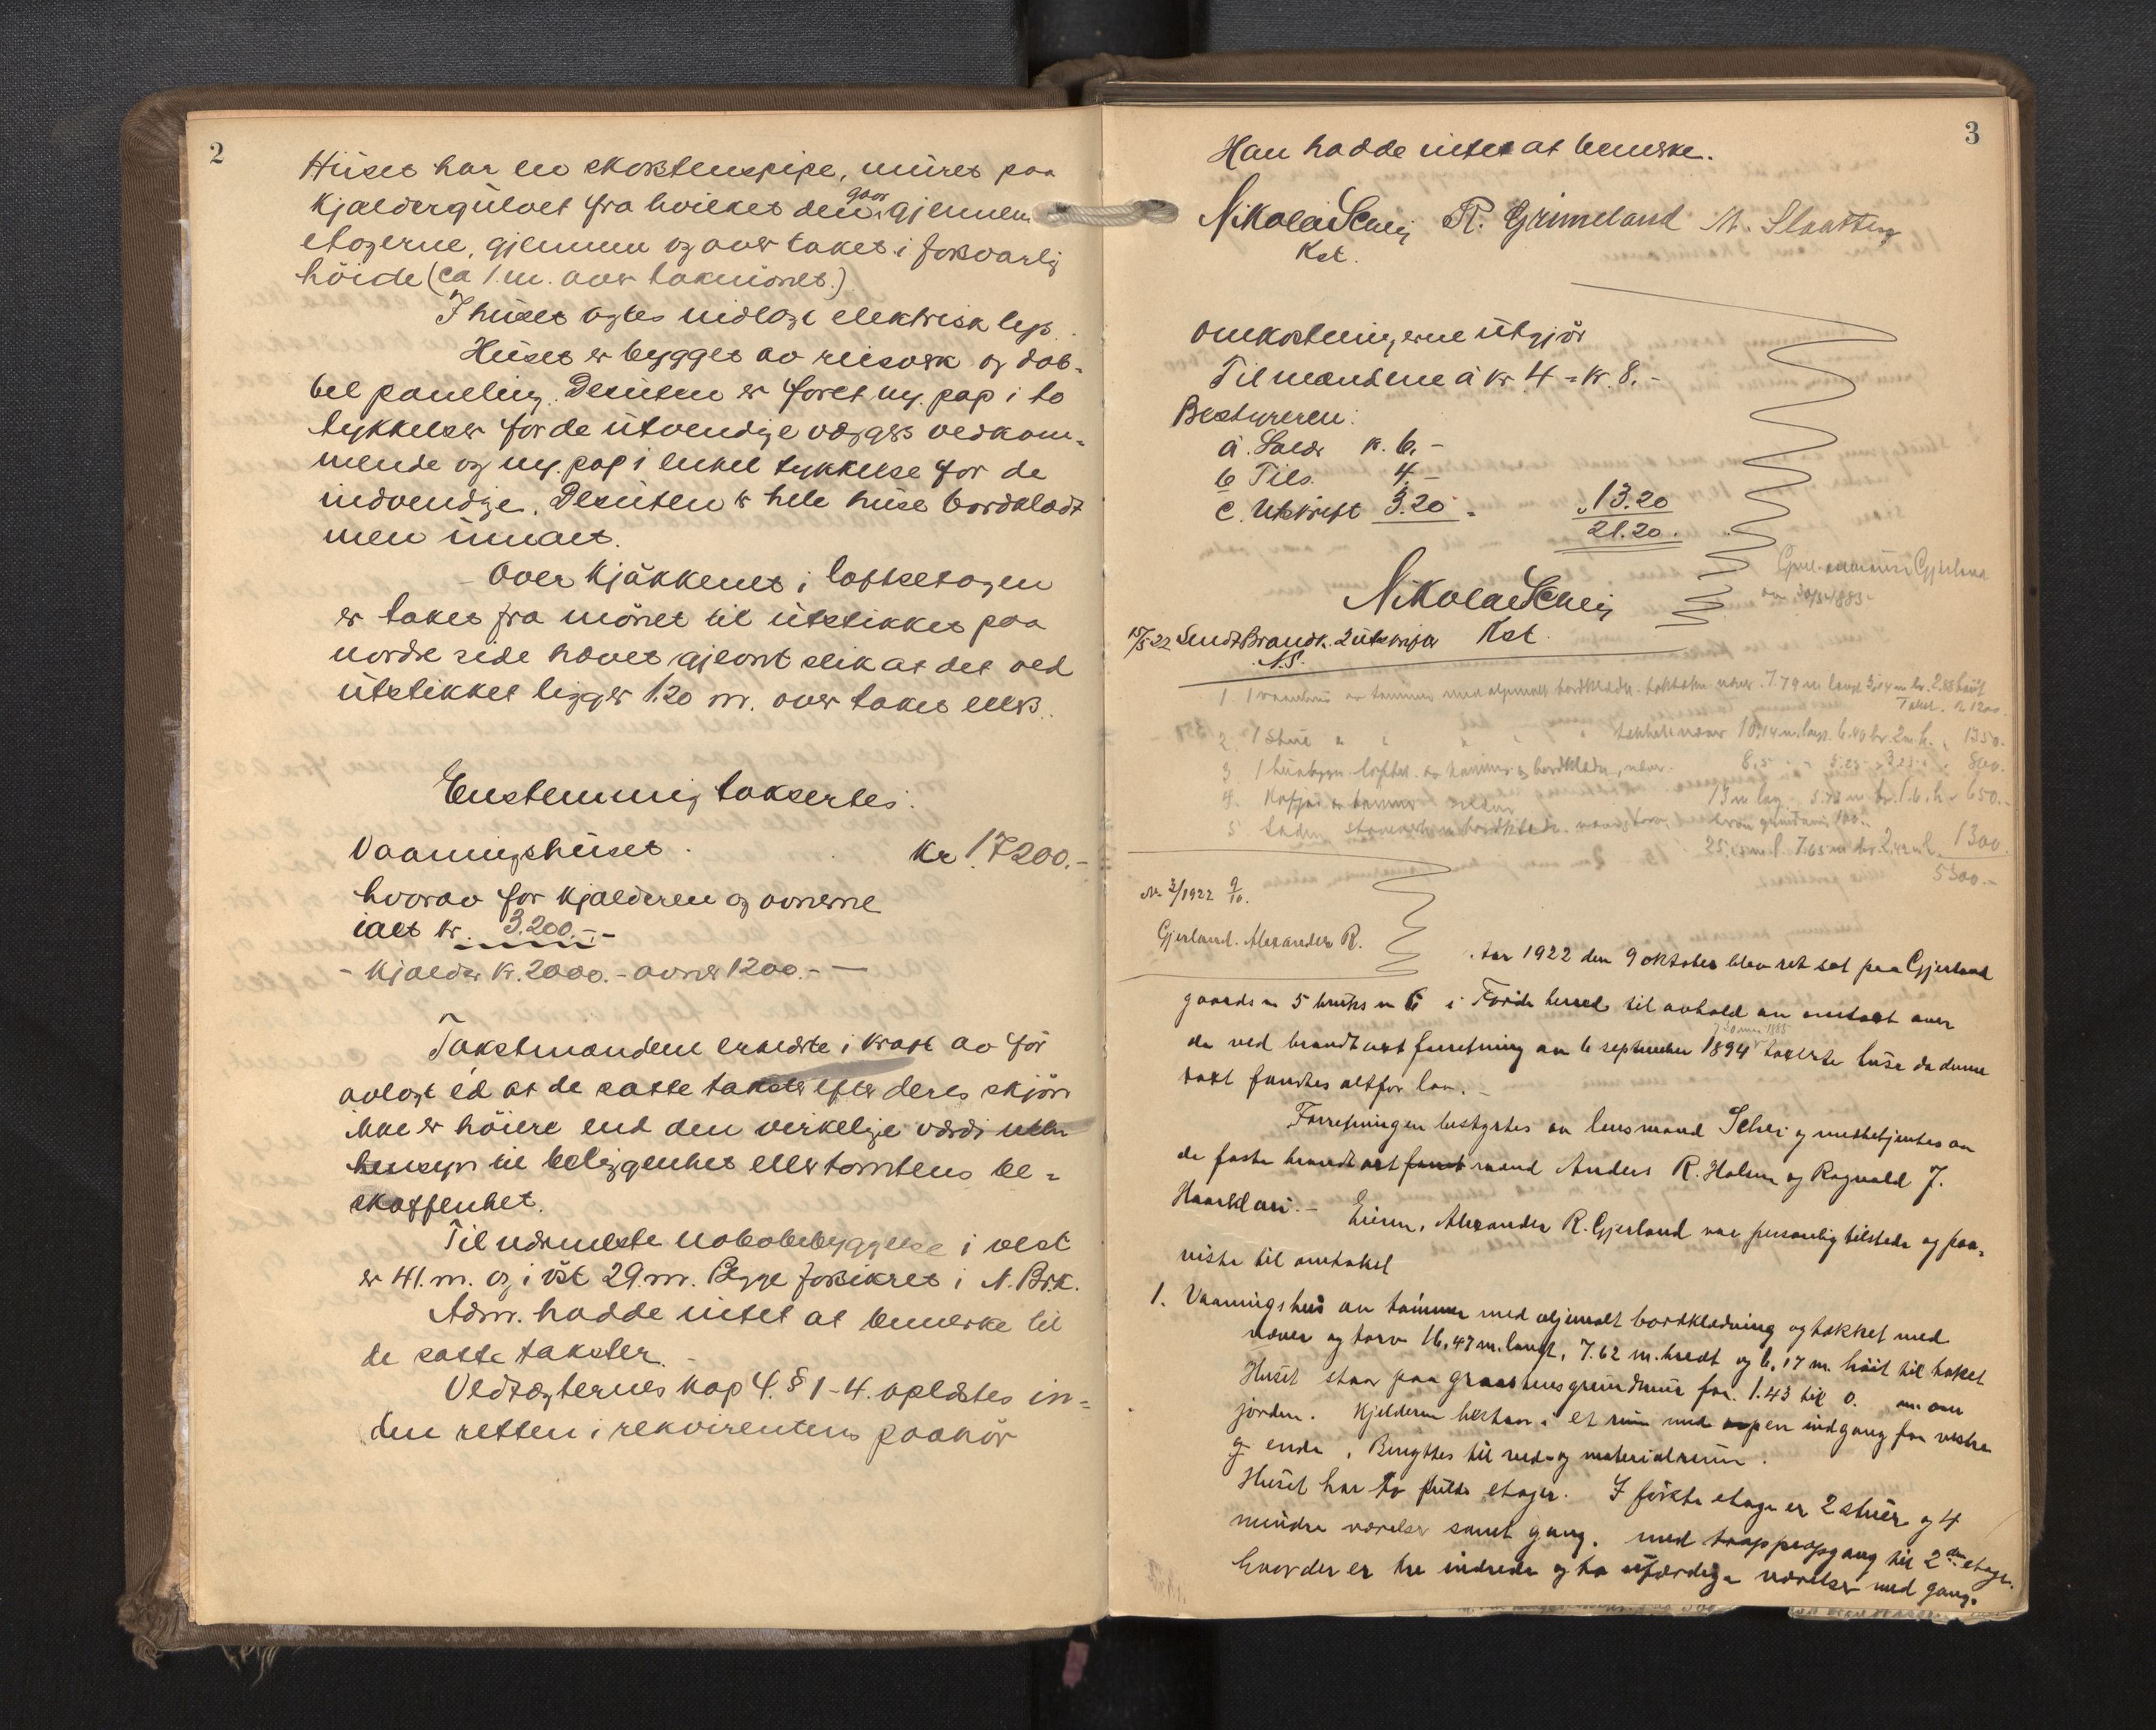 2
Huset har en skorstenspipe, muret paa
kjældergulvet fra hvilket den gaar gjennem
etagerne, gjennem og over taket i forsvarlig
höide (ca 1.m. over takmönet.)
I huset agtes indlagt elektrisk lys.
Huset er bygget av reisverk og dob-
bel paneling. Desuten er foret m. pap i to
tykkelser for de utvendige vægges vedkom-
mende og m. pap i enkel tykkelse for de
indvendige. Desuten er hele huse bordklædt
men umalt.
Over kjökkenet i loftsetagen
er taket fra mönet til utstikket paa
nordre side hævet gjevnt slik at det ved
utstikket ligger 1.20 m. over taket ellers.
Enstemmig taksertes:
Vaaningshuset . kr 17200.-
hvorav for kjælderen og ovnerne
ialt kr. 3.200.--
- Kjælder kr. 2000.- ovner 1200.- -
Takstmændene erklærte i kraft av för
avlagt ed at de satte takster efter deres skjön
ikke er höiere end den virkelige værdi uten
hensyn til beliggenhet eller tomtens be-
skaffenhet.
Til nærmeste nabobebyggelse i vest
er 41. m. og i öst 29. m. Begge forsikret i N. Brk.
Adm. hadde intet at bemerke til
de satte takster. -
Vedtægternes kap 4. § 1-4. oplæstes in-
den retten i rekvirentens paahör
3
Han hadde intet at bemerke.
Nikolai Schei R. Grimeland M. Slaatten
Kst.
Omkostningerne utgjör
Til mændene à kr 4 = kr. 8.-
Bestyreren:
a. Salær k. 6.-
b Tils. 4.-
c. Utskrift 3.20 = " 13.20
21.20.
Nikolai Schei
Kst.
15/5-22 Sendt Brandk. 2 utskrifter
N.S.
Gjerland
30/5 1883
1. 1 av tømmer med oljemalt bordklædn. 7.79 m langt 2.88 høit
Takst. kr 1200.
2. 1 Stue 10,14 m. langt. 6.40 br. 2 m h. " 1350.-
3 bordklædn, næver. 800.-
4. av tømmer 13 m lang 650.-
5. Laden bordklædn. næver, torv,
7.65 m br. 1300.
5300.-
Nr. 3/1922 9/10.
Gjerland. Alexander R.
Aar 1922 den 9 oktober blev ret sat paa Gjerland
gaards n 5 bruks n 6 i Förde herred til avhold av omtakst over
de ved brandtakstforretning av 6 september 1894 takserte huse da denne
takst fandtes altfor lav. -
Forretningen bestyrtes av lensmand Schei og medbetjentes av
de faste brandtakstmænd Anders R. Holsen og Ragnvald J.
Haarklau. - Eieren, Alexander R. Gjerland var personlig tilstede og paa-
viste til omtakst
1. Vaaningshus av tømmer med oljemalt bordklædning og tækket med
næver og torv 16,47 m. langt, 7.62 m. bredt og 6,17 m. höit til taket
Huset staar paa graastensgrundmur fra 1.43 til 0. m. over
jorden. Kjelderen bestaar i et rum med aapen indgang fra vestre
ende. Benyttes til ved- og materialrum.
Huset har to fulde etager. I første etage er 2 stuer og 4
mindre værelser samt gang, med trappeopgang til 2den etage.
hvor der er tre indrede og to ufærdige værelser med gang.